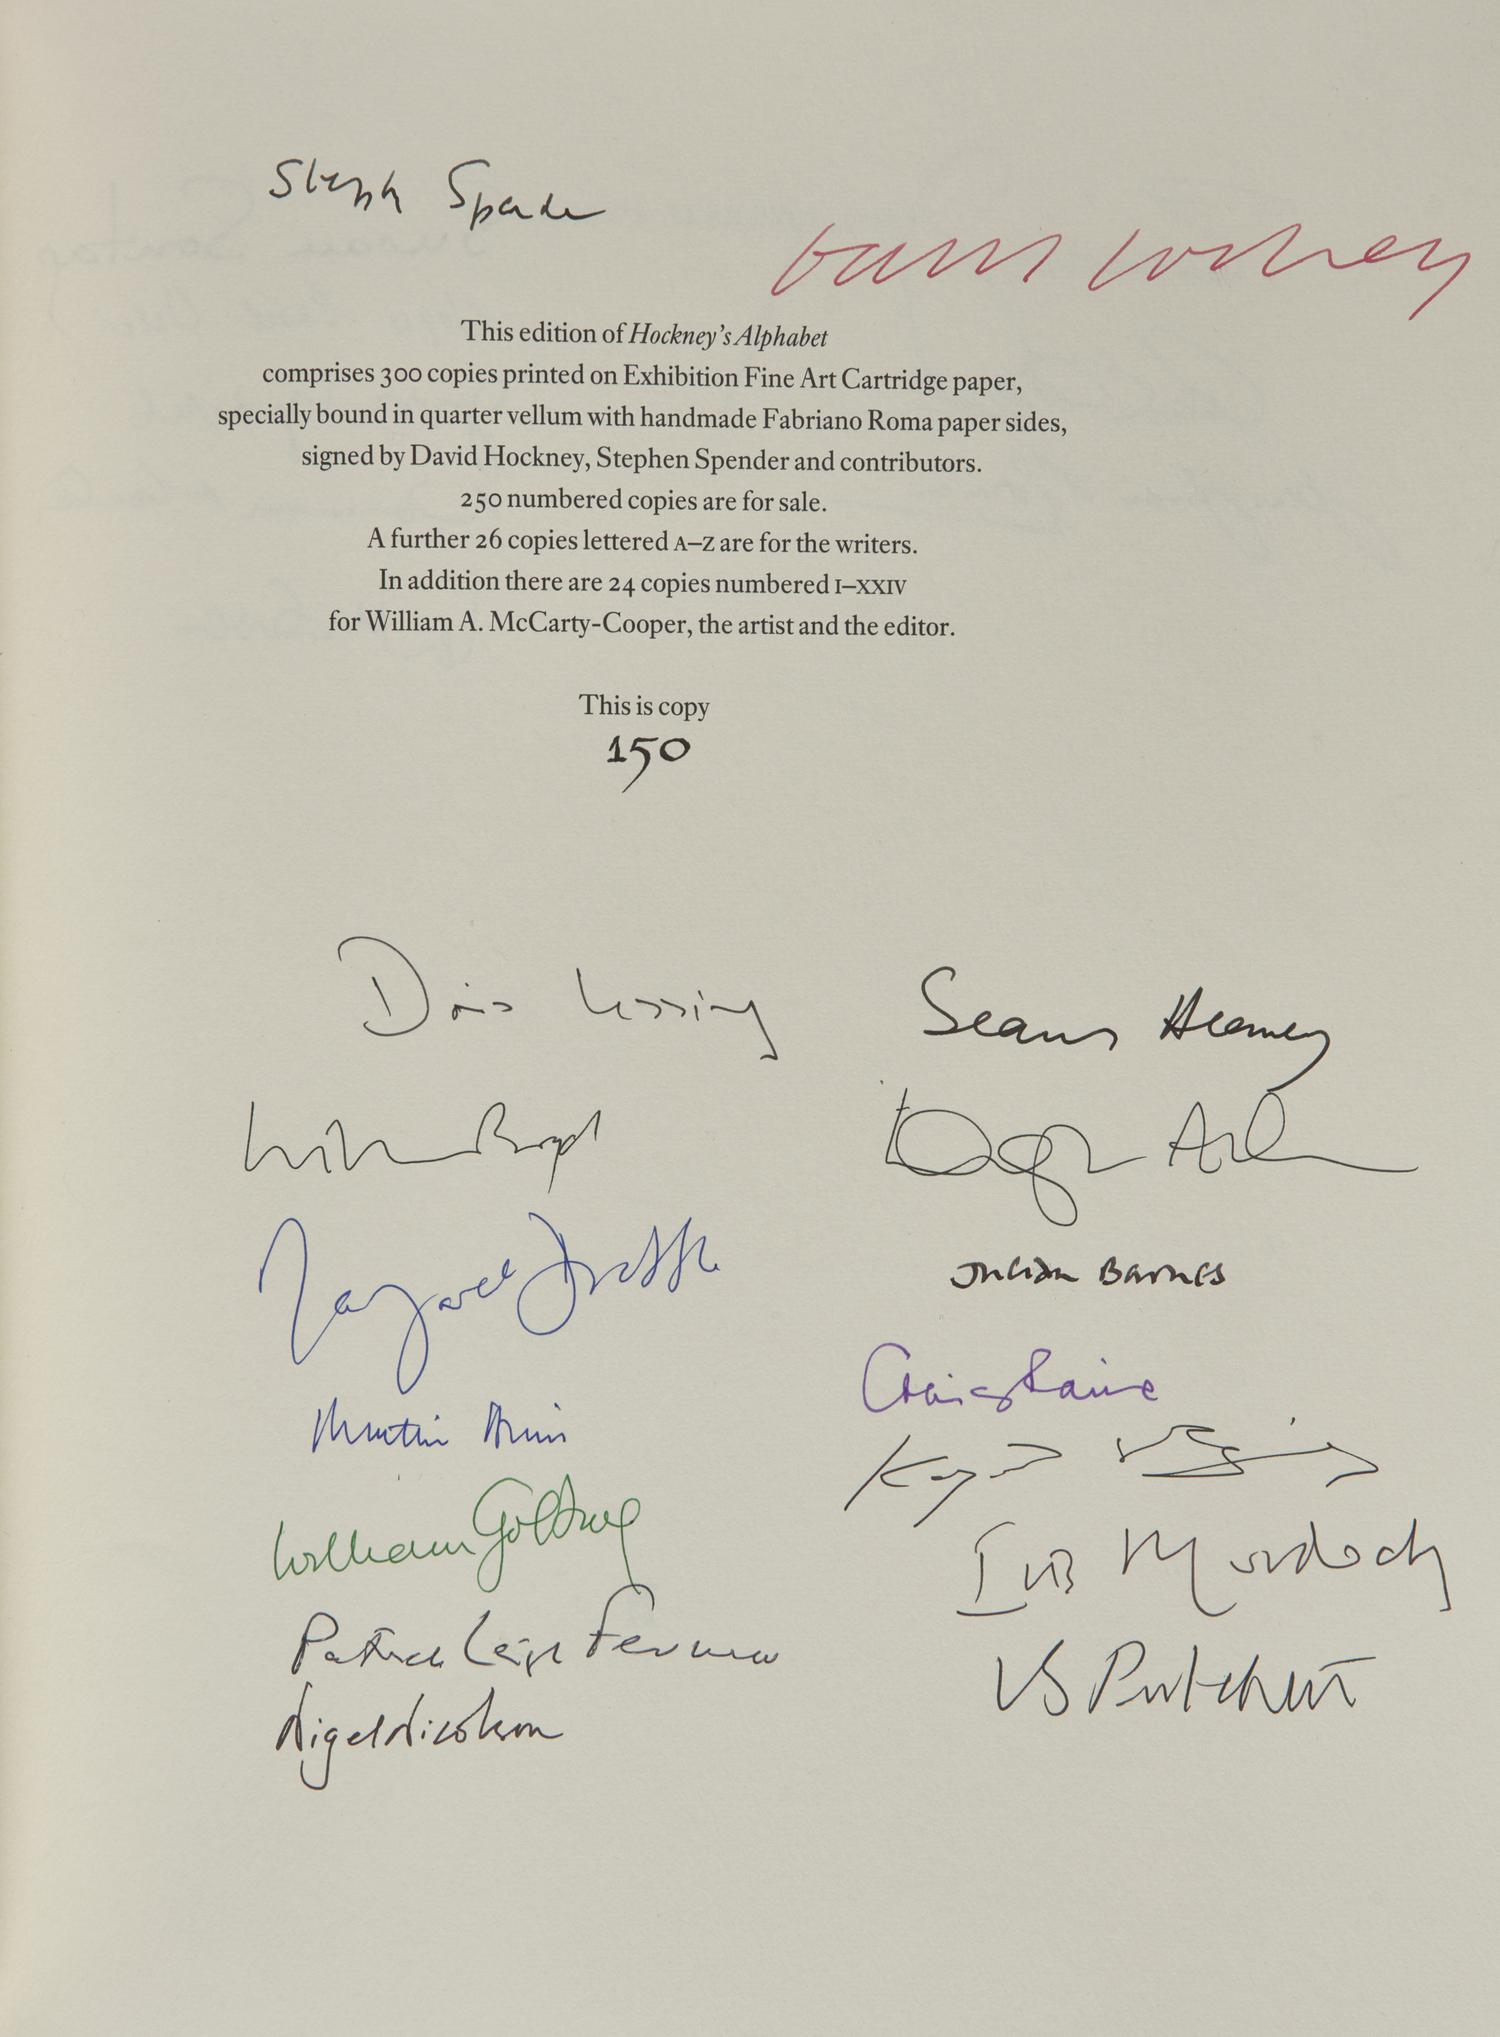 Stephen Spender
David Hockney
This edition of Hockney's Alphabet
comprises 300 copies printed on Exhibition Fine Art Cartridge paper,
specially bound in quarter vellum with handmade Fabriano Roma paper sides,
signed by David Hockney, Stephen Spender and contributors.
250 numbered copies are for sale.
A further 26 copies lettered A–Z are for the writers.
In addition there are 24 copies numbered I–XXIV
for William A. McCarty-Cooper, the artist and the editor.
This is copy
150
Doris Lessing
Seamus Heaney
William Boyd
Douglas Adams
Margaret Drabble
Julian Barnes
Craig Raine
Martin Amis
William Golding
Iris Murdoch
Patrick Leigh Fermor
VS Pritchett
Nigel Nicolson